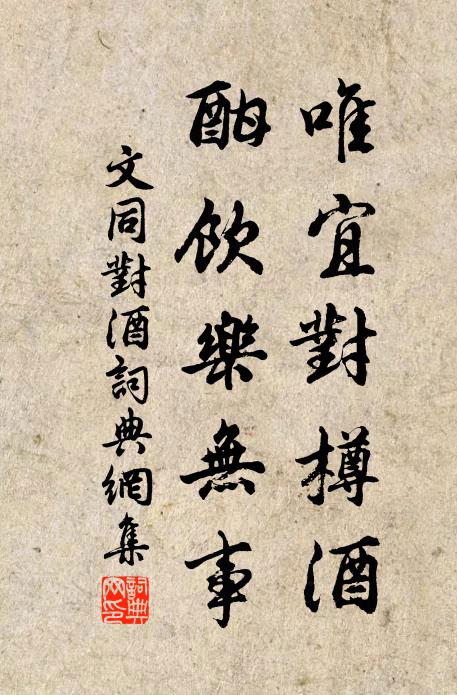 唯宜對樽酒
酣飲樂無事
文同對酒詞典網集
詞典網印